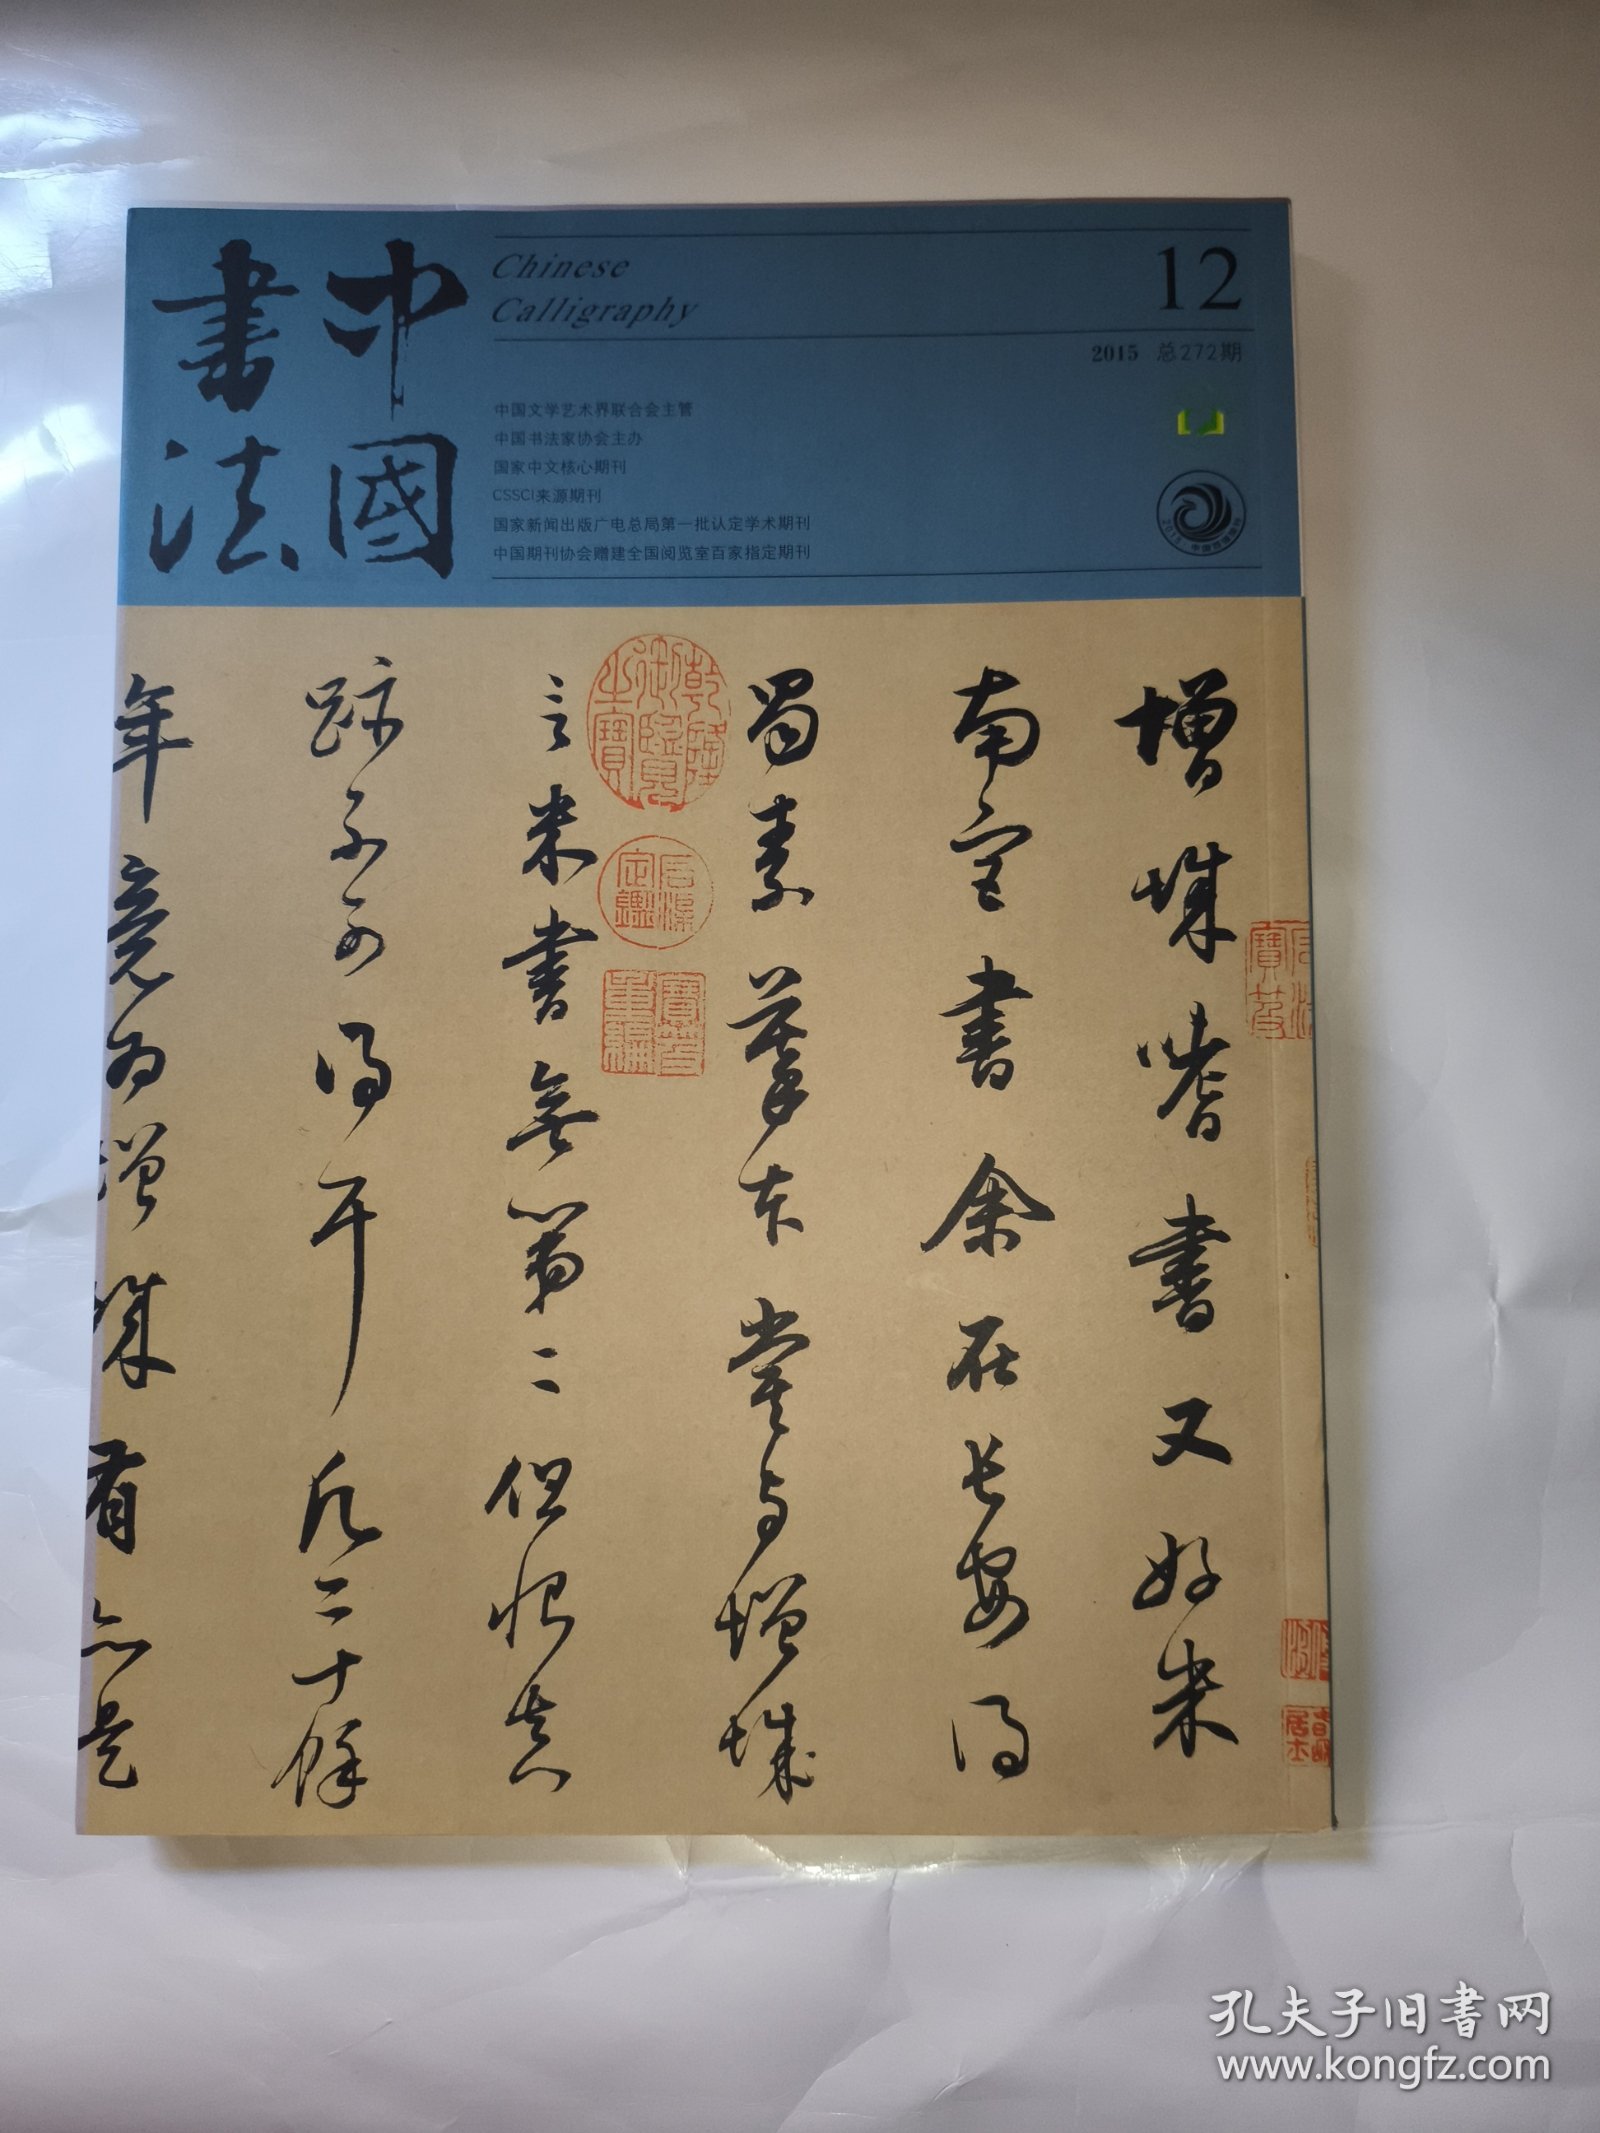 中國書法
Chinese
Calligraphy
12
2015 总272期
中国文学艺术界联合会主管
中国书法家协会主办
国家中文核心期刊
CSSCI来源期刊
国家新闻出版广电总局第一批认定学术期刊
中国期刊协会赠建全国阅览室百家指定期刊
增城嗜書又好米
南宮書余在長安得
蜀素摹本嘗與增城
言米書無第二但恨真
跡不可得耳凡二十餘
年竟為增城有亦是
乾隆御覽之寶
石渠定鑑
寶笈重編
孔夫子旧书网
www.kongfz.com